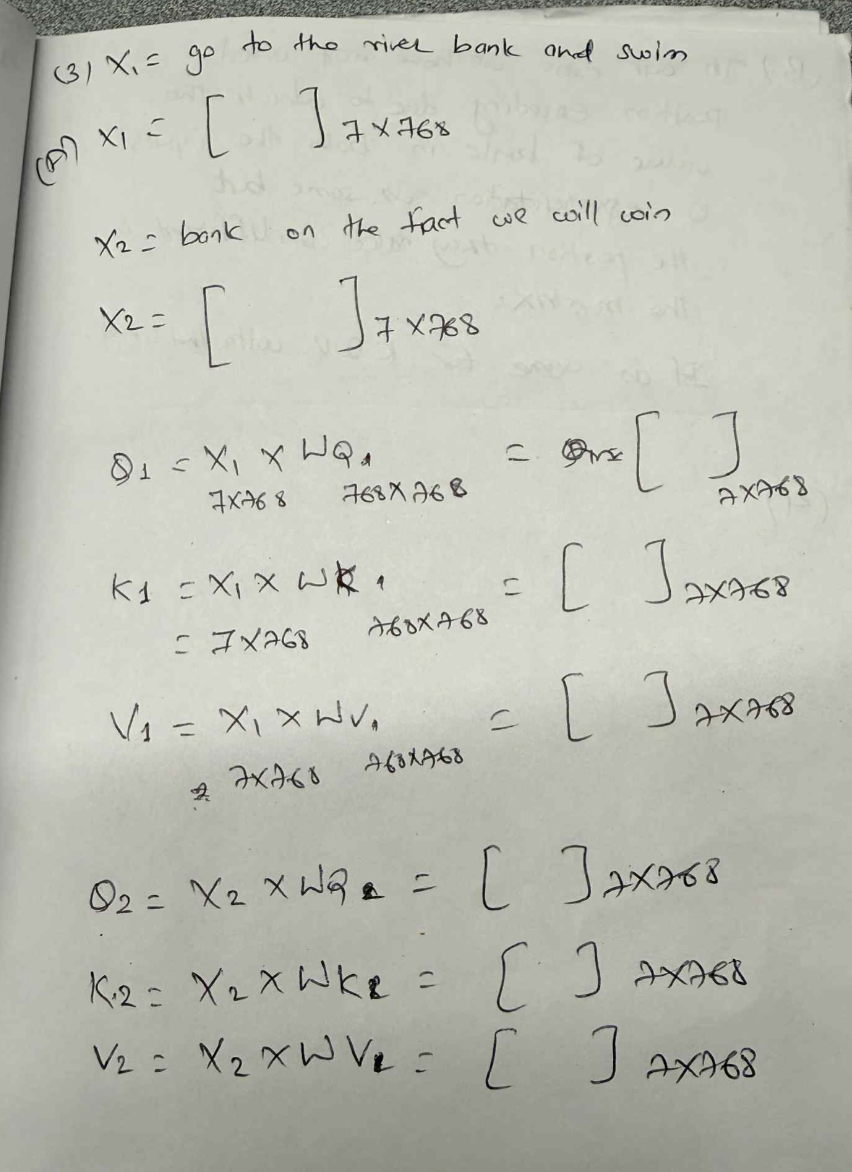 (3) X1 = go to the river bank and swim
(A) X1 = [ ] 7 x 768
X2 = bank on the fact we will win
X2 = [ ] 7 x 768
Q1 = X1 x WQ1 = [ ] 7x768
7x768 768x768
K1 = X1 x WK1 = [ ] 7x768
= 7x768 768x768
V1 = X1 x WV1 = [ ] 7x768
7x768 768x768
Q2 = X2 x WQ2 = [ ] 7x768
K2 = X2 x WK2 = [ ] 7x768
V2 = X2 x WV2 = [ ] 7x768